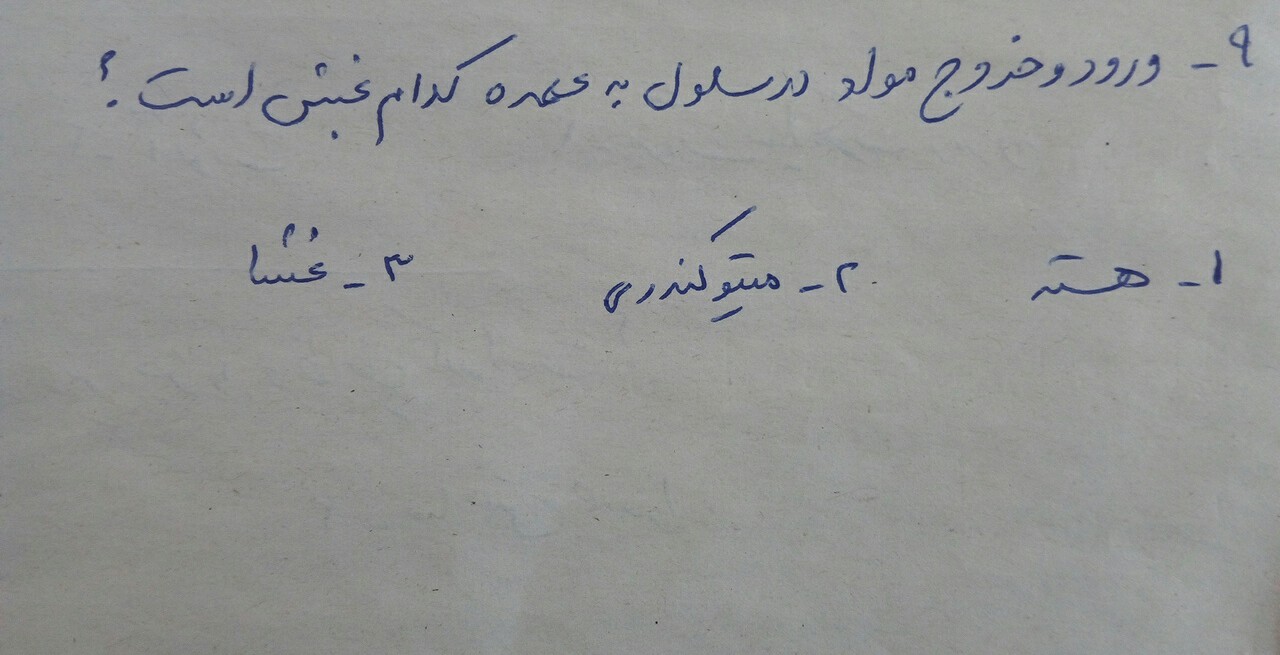 ۹- ورود و خروج مواد در سلول به عهده کدام بخش است؟
۱- هسته ۲- میتوکندری ۳- غشا